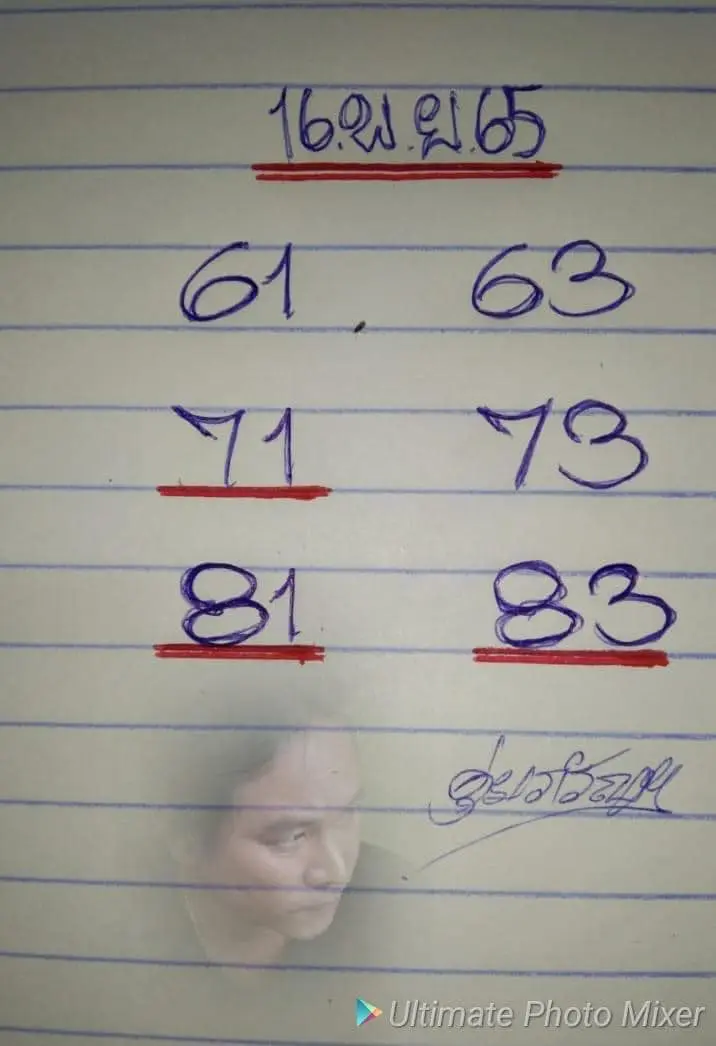 16.พ.ย.65
61 63
71 73
81 83
Ultimate Photo Mixer